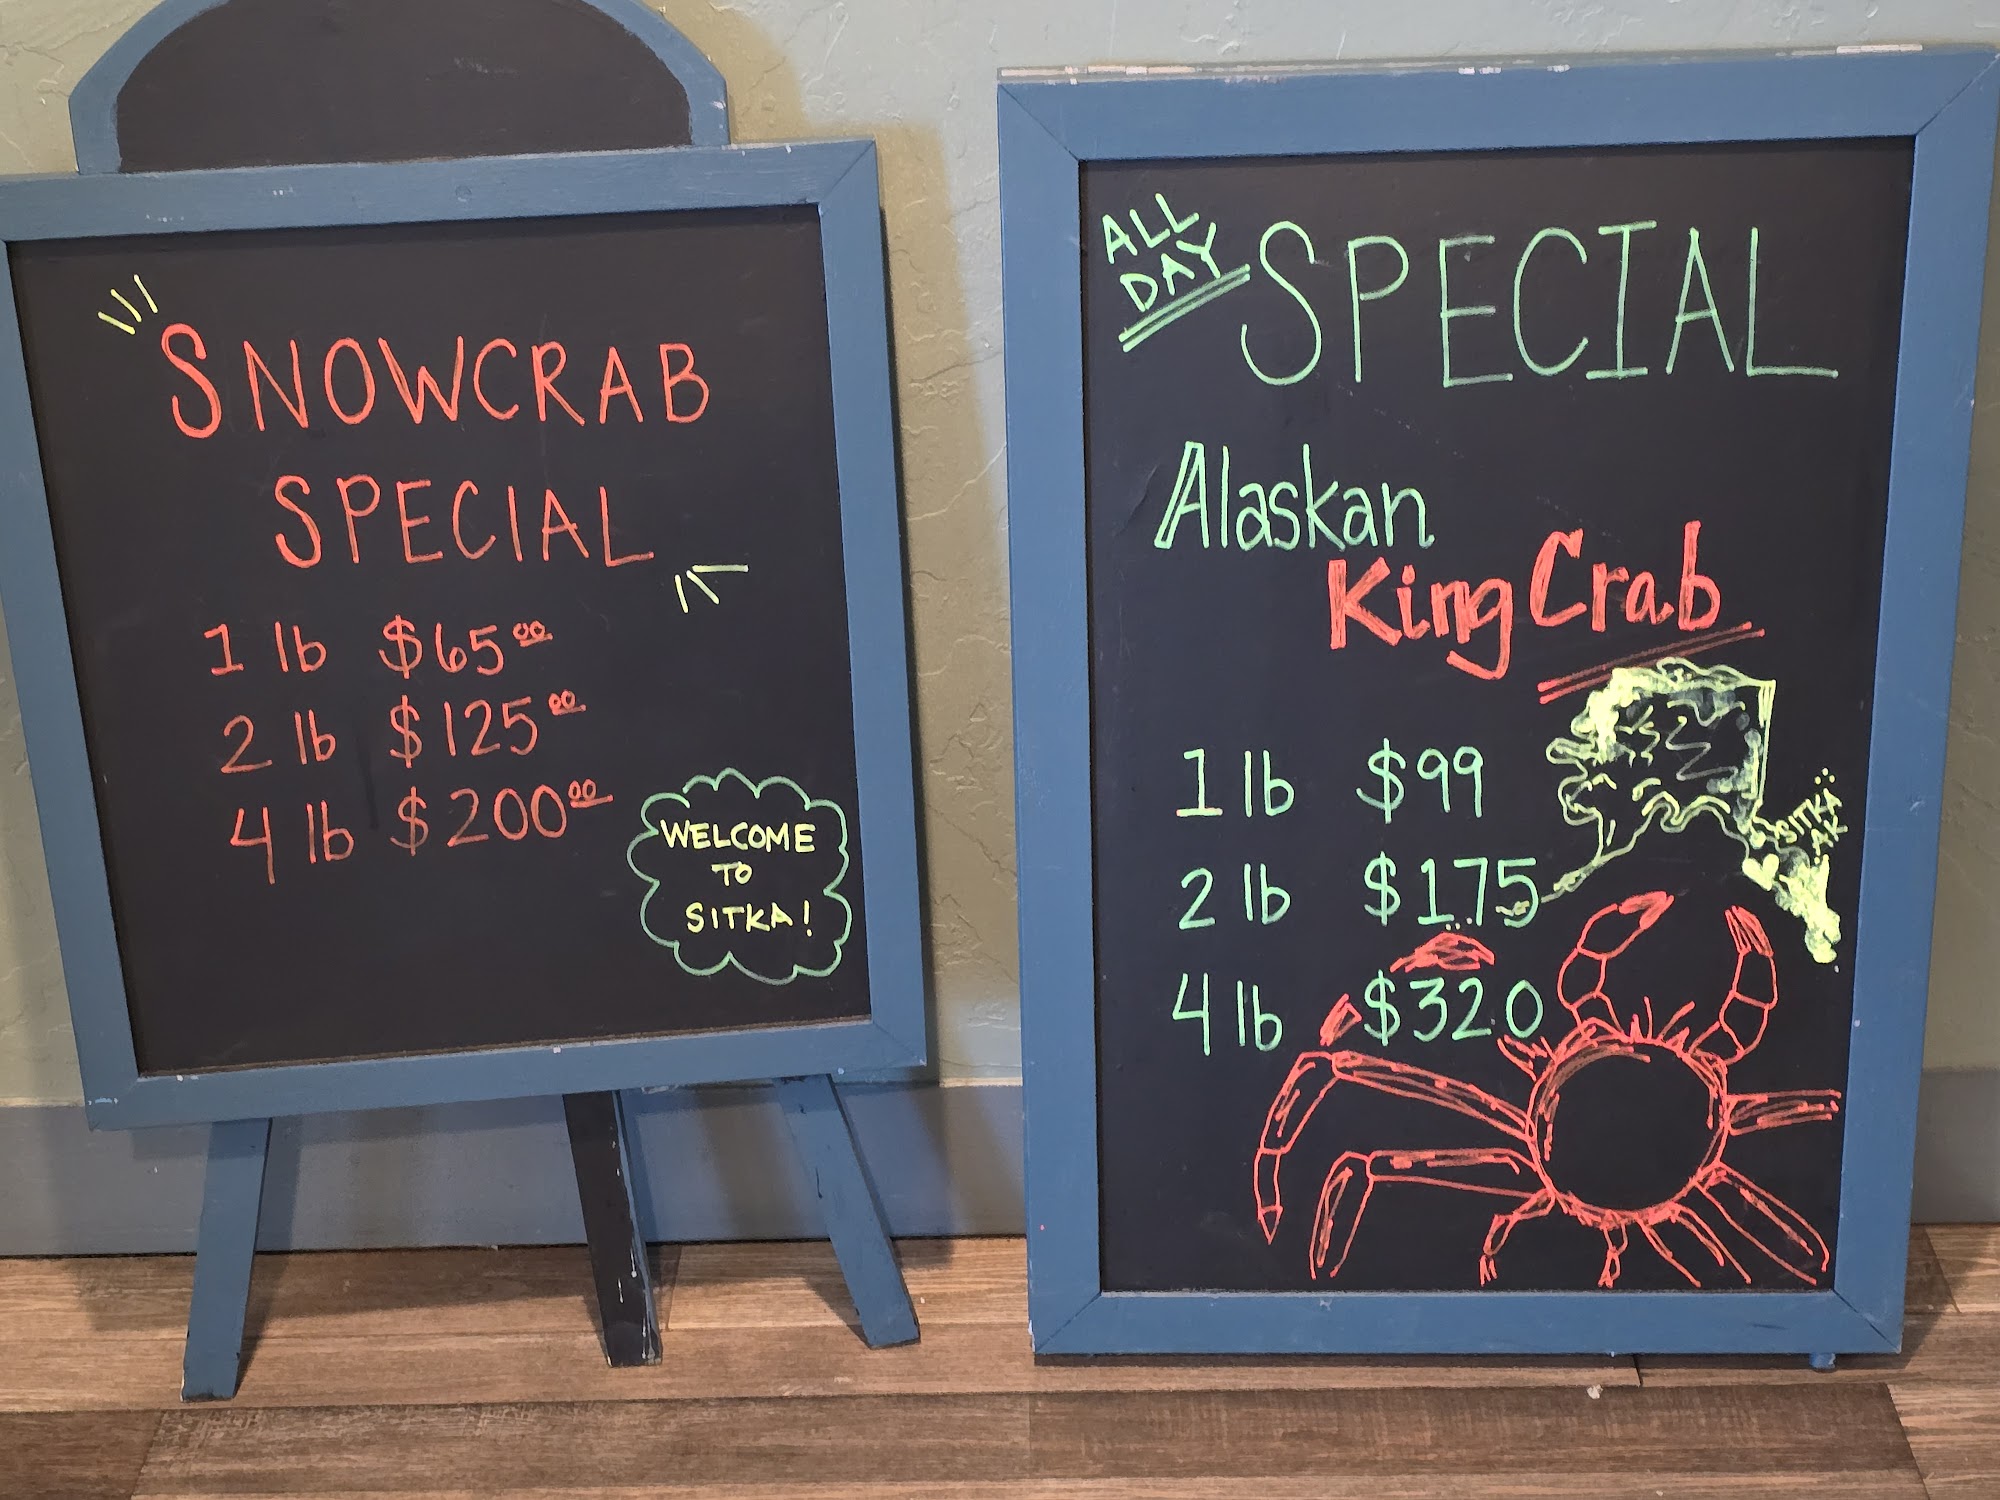 SNOWCRAB
SPECIAL
1 lb $65.00
2 lb $125.00
4 lb $200.00
WELCOME
TO
SITKA!
ALL
DAY
SPECIAL
Alaskan
King Crab
1 lb $99
2 lb $175
4 lb $320
SITKA
AK